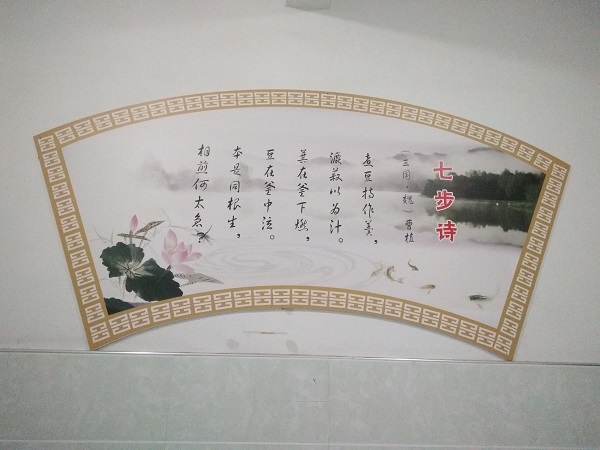 七步诗
（三国·魏）曹植
煮豆持作羹，
漉菽以为汁。
萁在釜下燃，
豆在釜中泣。
本是同根生，
相煎何太急？